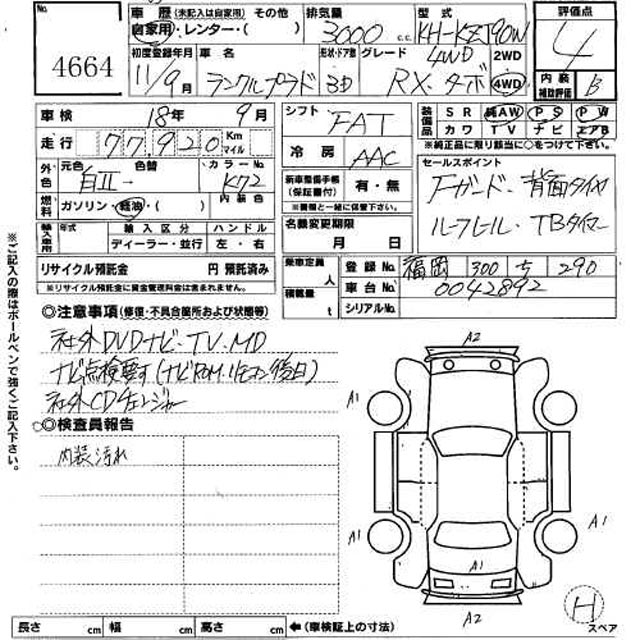 No.
4664
車歴 (未記入は自家用) その他
自家用・レンター・( )
排気量
3000 c.c.
型式
KH-KZJ90W
評価点
4
内装補助評価 B
初度登録年月
11/9月
車名
ランクルプラド
形状・ドア数
3D
グレード
4WD
RX.ターボ
2WD
4WD
車検 18年 9月
走行 77,920 Km マイル
外色 元色 色替 カラーNo.
白II K72
燃料 ガソリン・軽油・( ) 内装色
輸入車用 年式 輸入区分 ハンドル
ディーラー・並行 左・右
リサイクル預託金 円 預託済み
※リサイクル預託金に資金管理料金は含まれません。
シフト
FAT
冷房
AAC
新車整備手帳(保証書付) 有・無
※書類と一緒に保管下さい。
名義変更期限
月 日
乗車定員 人
積載量 t
装備品 SR 純AW PS PW
カワ TV ナビ エアB
※純正品に限り該当に○をつけて下さい。
セールスポイント
Fガード・背面タイヤ
ルーフレール・TBタイマー
登録No. 福岡 300 ち 290
車台No. 0042892
シリアルNo.
◎注意事項(修復・不具合箇所および状態等)
社外DVDナビ・TV.MD
ナビ点検要す(ナビROM.リモコン後日)
社外CDチェンジャー
◎検査員報告
内装汚れ
※ご記入の際はボールペンで強くご記入下さい。
A2
A1
A1
A1
A1
A2
H
スペア
長さ cm 幅 cm 高さ cm ←(車検証上の寸法)